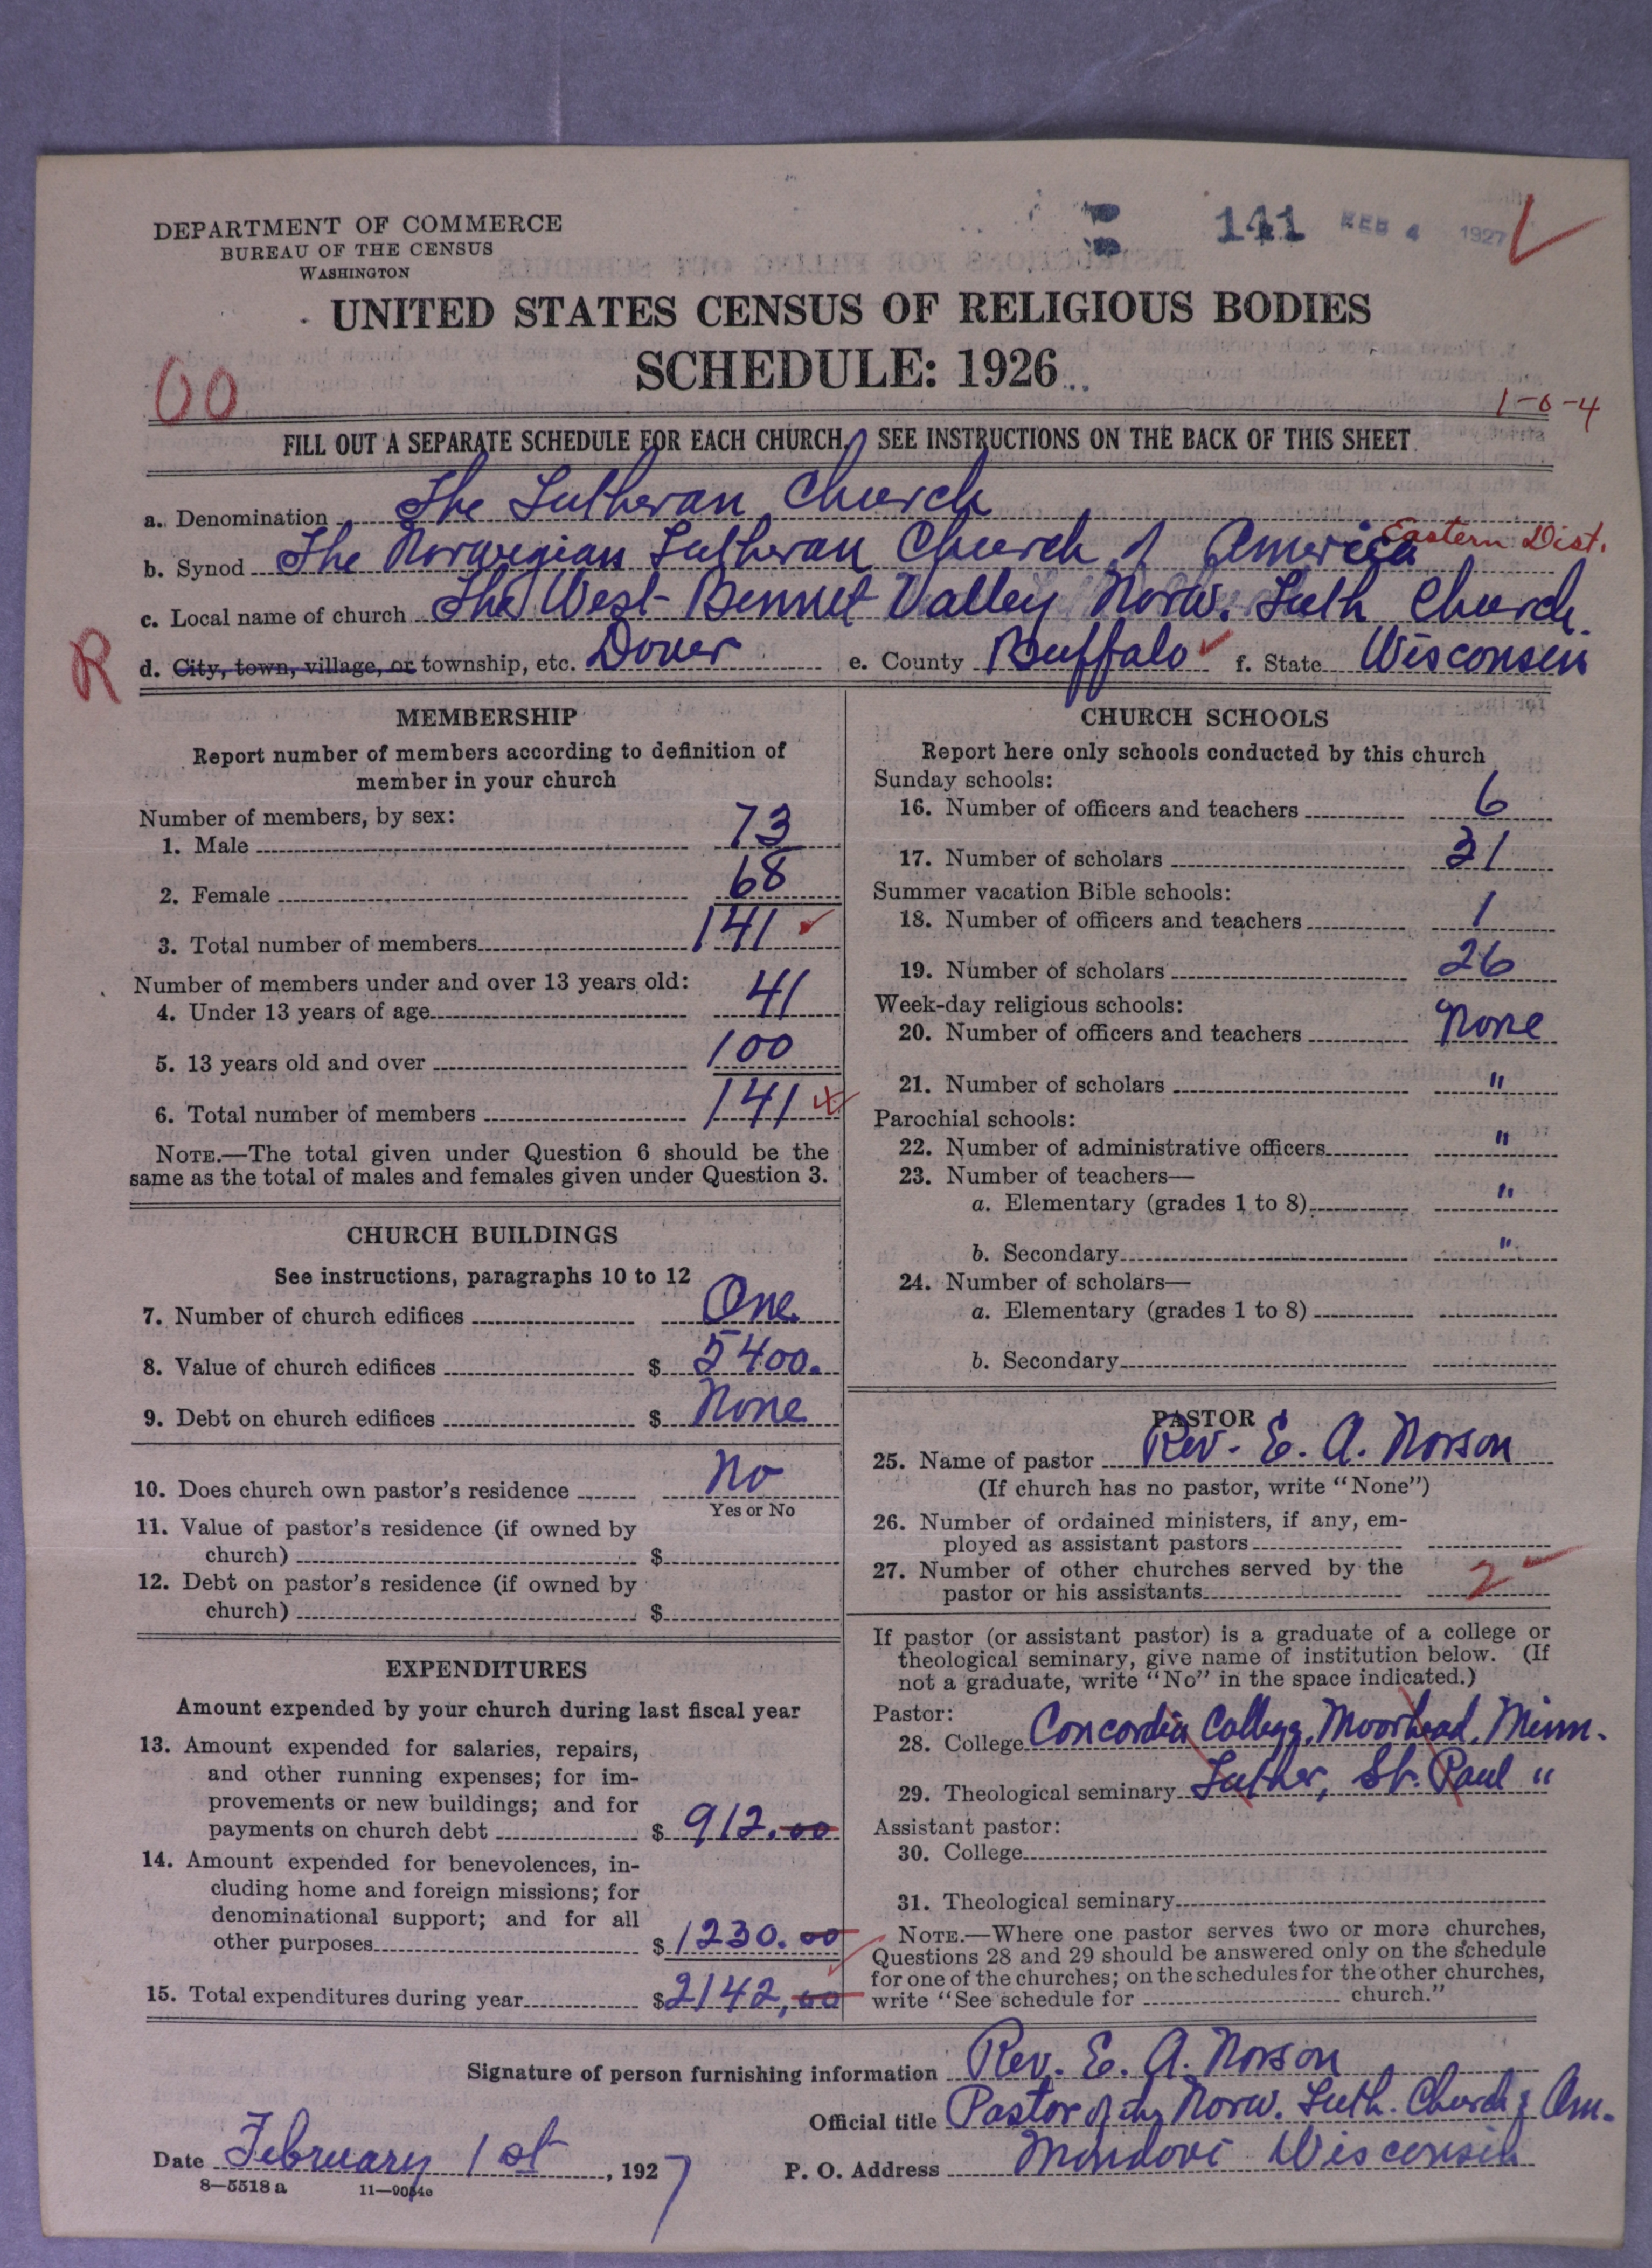 DEPARTMENT OF COMMERCE
BUREAU OF THE CENSUS
WASHINGTON
141 FEB 4 1927
UNITED STATES CENSUS OF RELIGIOUS BODIES
SCHEDULE: 1926
00
1-0-4
FILL OUT A SEPARATE SCHEDULE FOR EACH CHURCH. SEE INSTRUCTIONS ON THE BACK OF THIS SHEET
a. Denomination The Lutheran Church
b. Synod The Norwegian Lutheran Church of America Eastern Dist.
c. Local name of church The West Bennet Valley Norw. Luth Church.
R
d. City, town, village, or township, etc. Dover e. County Buffalo f. State Wisconsin
MEMBERSHIP
Report number of members according to definition of
member in your church
Number of members, by sex:
1. Male 73
2. Female 68
3. Total number of members 141
Number of members under and over 13 years old:
4. Under 13 years of age 41
5. 13 years old and over 100
6. Total number of members 141
NOTE.—The total given under Question 6 should be the
same as the total of males and females given under Question 3.
CHURCH BUILDINGS
See instructions, paragraphs 10 to 12
7. Number of church edifices One
8. Value of church edifices $ 5400.
9. Debt on church edifices $ None
10. Does church own pastor's residence No
Yes or No
11. Value of pastor's residence (if owned by
church) $
12. Debt on pastor's residence (if owned by
church) $
EXPENDITURES
Amount expended by your church during last fiscal year
13. Amount expended for salaries, repairs,
and other running expenses; for im-
provements or new buildings; and for
payments on church debt $ 912.00
14. Amount expended for benevolences, in-
cluding home and foreign missions; for
denominational support; and for all
other purposes $ 1230.00
15. Total expenditures during year $ 2142,00
CHURCH SCHOOLS
Report here only schools conducted by this church
Sunday schools:
16. Number of officers and teachers 6
17. Number of scholars 31
Summer vacation Bible schools:
18. Number of officers and teachers 1
19. Number of scholars 26
Week-day religious schools:
20. Number of officers and teachers None
21. Number of scholars "
Parochial schools:
22. Number of administrative officers "
23. Number of teachers—
a. Elementary (grades 1 to 8) "
b. Secondary "
24. Number of scholars—
a. Elementary (grades 1 to 8)
b. Secondary
PASTOR
25. Name of pastor Rev. E. A. Norson
(If church has no pastor, write "None")
26. Number of ordained ministers, if any, em-
ployed as assistant pastors
27. Number of other churches served by the
pastor or his assistants 2
If pastor (or assistant pastor) is a graduate of a college or
theological seminary, give name of institution below. (If
not a graduate, write "No" in the space indicated.)
Pastor:
28. College Concordia College, Moorhead, Minn.
29. Theological seminary Luther, St. Paul "
Assistant pastor:
30. College
31. Theological seminary
NOTE.—Where one pastor serves two or more churches,
Questions 28 and 29 should be answered only on the schedule
for one of the churches; on the schedules for the other churches,
write "See schedule for church."
Signature of person furnishing information Rev. E. A. Norson
Official title Pastor of the Norw. Luth. Church of Am.
Date February 1st, 1927 P. O. Address Mondovi Wisconsin
8—5518 a 11—9054c